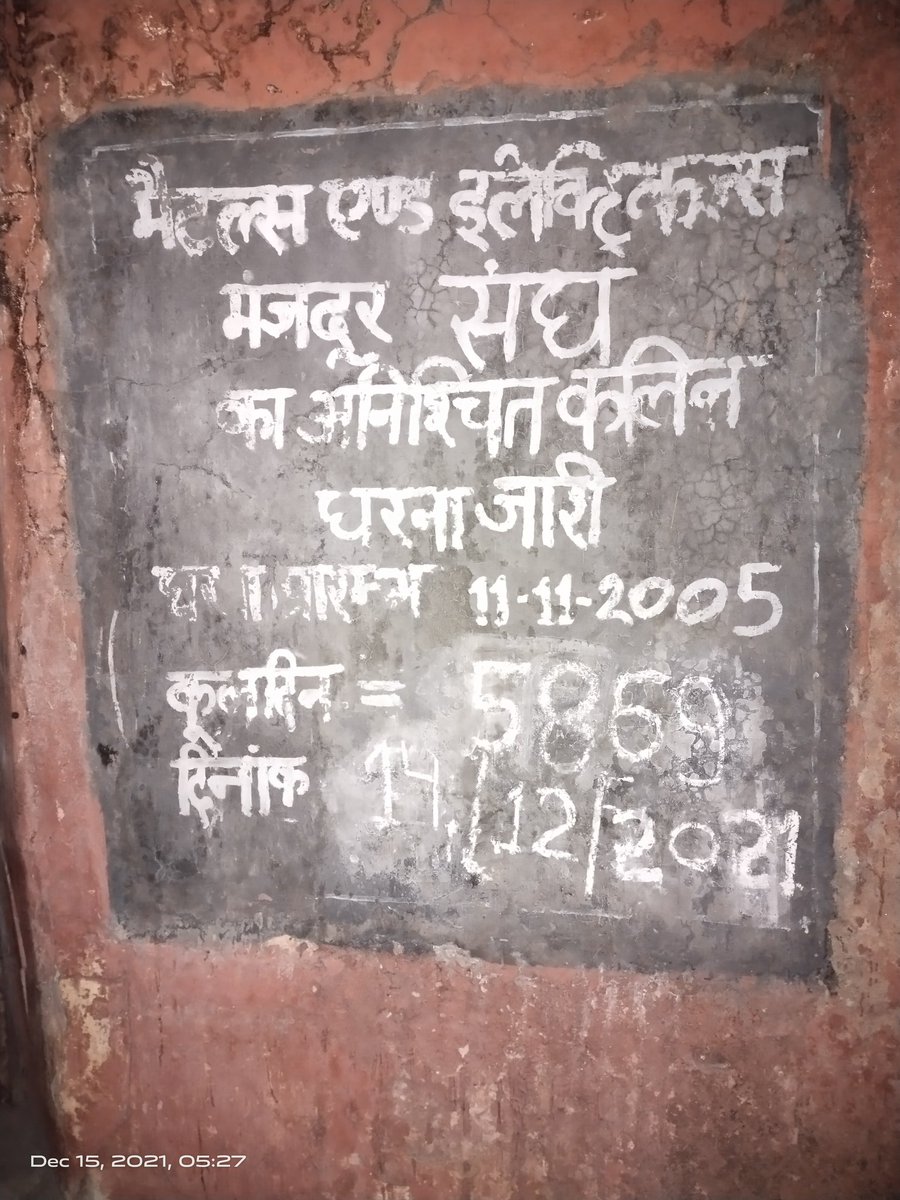 मैटल्स एण्ड इलेक्ट्रिकल्स
मजदूर संघ
का अनिश्चित कालिन
धरना जारी
धरना प्रारम्भ 11-11-2005
कूलदिन = 5869
दिनांक 14/12/2021
Dec 15, 2021, 05:27